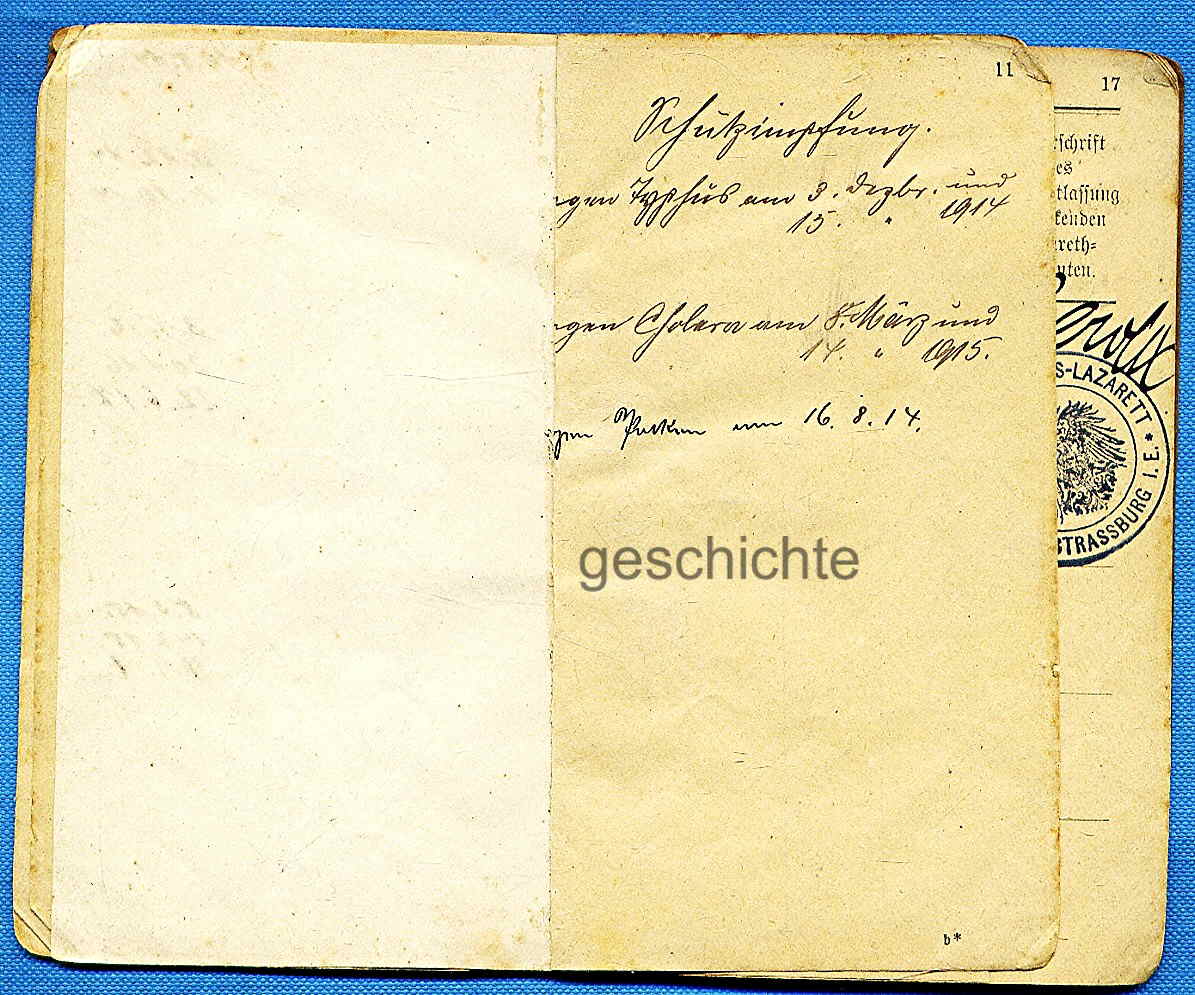 11
Schutzimpfung.
gen Typhus am 3. Dezbr. und
15. " 1914
gen Cholera am 8. März und
14. " 1915.
gen Pocken am 16. 8. 14.
geschichte
b*
17
schrift
es
tlassung
kenden
reth=
nten.
S-LAZARETT
STRASSBURG I. E. *